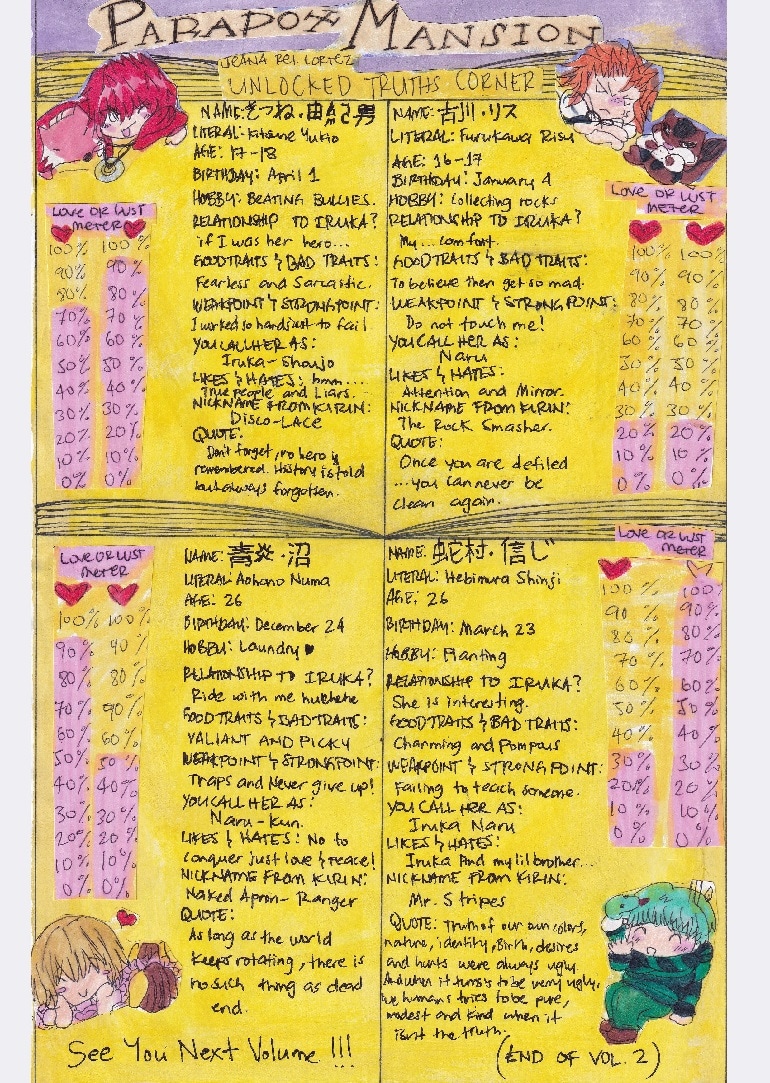 PARADOX MANSION
JEANA REI CORTEZ
UNLOCKED TRUTHS CORNER
NAME: きつね・由紀男
LITERAL: Kitsune Yukio
AGE: 17-18
BIRTHDAY: April 1
HOBBY: BEATING BULLIES.
RELATIONSHIP TO IRUKA?
if I was her hero...
GOOD TRAITS & BAD TRAITS:
Fearless and Sarcastic.
WEAKPOINT & STRONGPOINT:
I worked so hard just to fail
YOU CALL HER AS:
Iruka-Shoujo
LIKES & HATES: hmm....
True people and Liars.
NICKNAME FROM KIRIN:
Disco-Lace
QUOTE:
Don't forget, no hero is
remembered. History is told
but always forgotten.
LOVE OR LUST
METER
100% 100%
90% 90%
80% 80%
70% 70%
60% 60%
50% 50%
40% 40%
30% 30%
20% 20%
10% 10%
0% 0%
NAME: 古川・リス
LITERAL: Furukawa Risu
AGE: 16-17
BIRTHDAY: January 4
HOBBY: Collecting rocks
RELATIONSHIP TO IRUKA?
My... comfort.
GOOD TRAITS & BAD TRAITS:
To believe then get so mad.
WEAKPOINT & STRONG POINT:
Do not touch me!
YOU CALL HER AS:
Naru
LIKES & HATES:
Attention and Mirror.
NICKNAME FROM KIRIN:
The Rock Smasher.
QUOTE:
Once you are defiled
...you can never be
clean again.
LOVE OR LUST
METER
100% 100%
90% 90%
80% 80%
70% 70%
60% 60%
50% 50%
40% 40%
30% 30%
20% 20%
10% 10%
0% 0%
LOVE OR LUST
METER
100% 100%
90% 90%
80% 80%
70% 90%
60% 60%
50% 50%
40% 40%
30% 30%
20% 20
10% 10%
0% 0%
NAME: 青炎・沼
LITERAL: Aohono Numa
AGE: 26
BIRTHDAY: December 24
HOBBY: Laundry ♥
RELATIONSHIP TO IRUKA?
Ride with me
GOOD TRAITS & BAD TRAITS:
VALIANT AND PICKY
WEAKPOINT & STRONGPOINT:
Traps and Never give up!
YOU CALL HER AS:
Naru-kun.
LIKES & HATES: No to
conquer just love & Peace!
NICKNAME FROM KIRIN:
Naked Apron-Ranger
QUOTE:
As long as the world
keeps rotating, there is
no such thing as dead
end.
NAME: 蛇村・信じ
LITERAL: Hebimura Shinji
AGE: 26
BIRTHDAY: March 23
HOBBY: Planting
RELATIONSHIP TO IRUKA?
She is interesting.
GOOD TRAITS & BAD TRAITS:
Charming and Pompous
WEAKPOINT & STRONG POINT:
Failing to teach someone.
YOU CALL HER AS:
Iruka Naru
LIKES & HATES:
Iruka And my lil brother...
NICKNAME FROM KIRIN:
Mr. Stripes
QUOTE: Truth of our own colors,
nature, identity, Birth, desires
and hurts were always ugly.
And when it turns to be very ugly,
we humans tries to be pure,
modest and kind when it
isn't the truth.
LOVE OR LUST
METER
100% 100%
90% 90%
80% 80%
70% 70%
60% 60%
50% 50%
40% 40%
30% 30%
20% 20%
10% 10%
0% 0%
See You Next Volume!!!
(END OF VOL. 2)